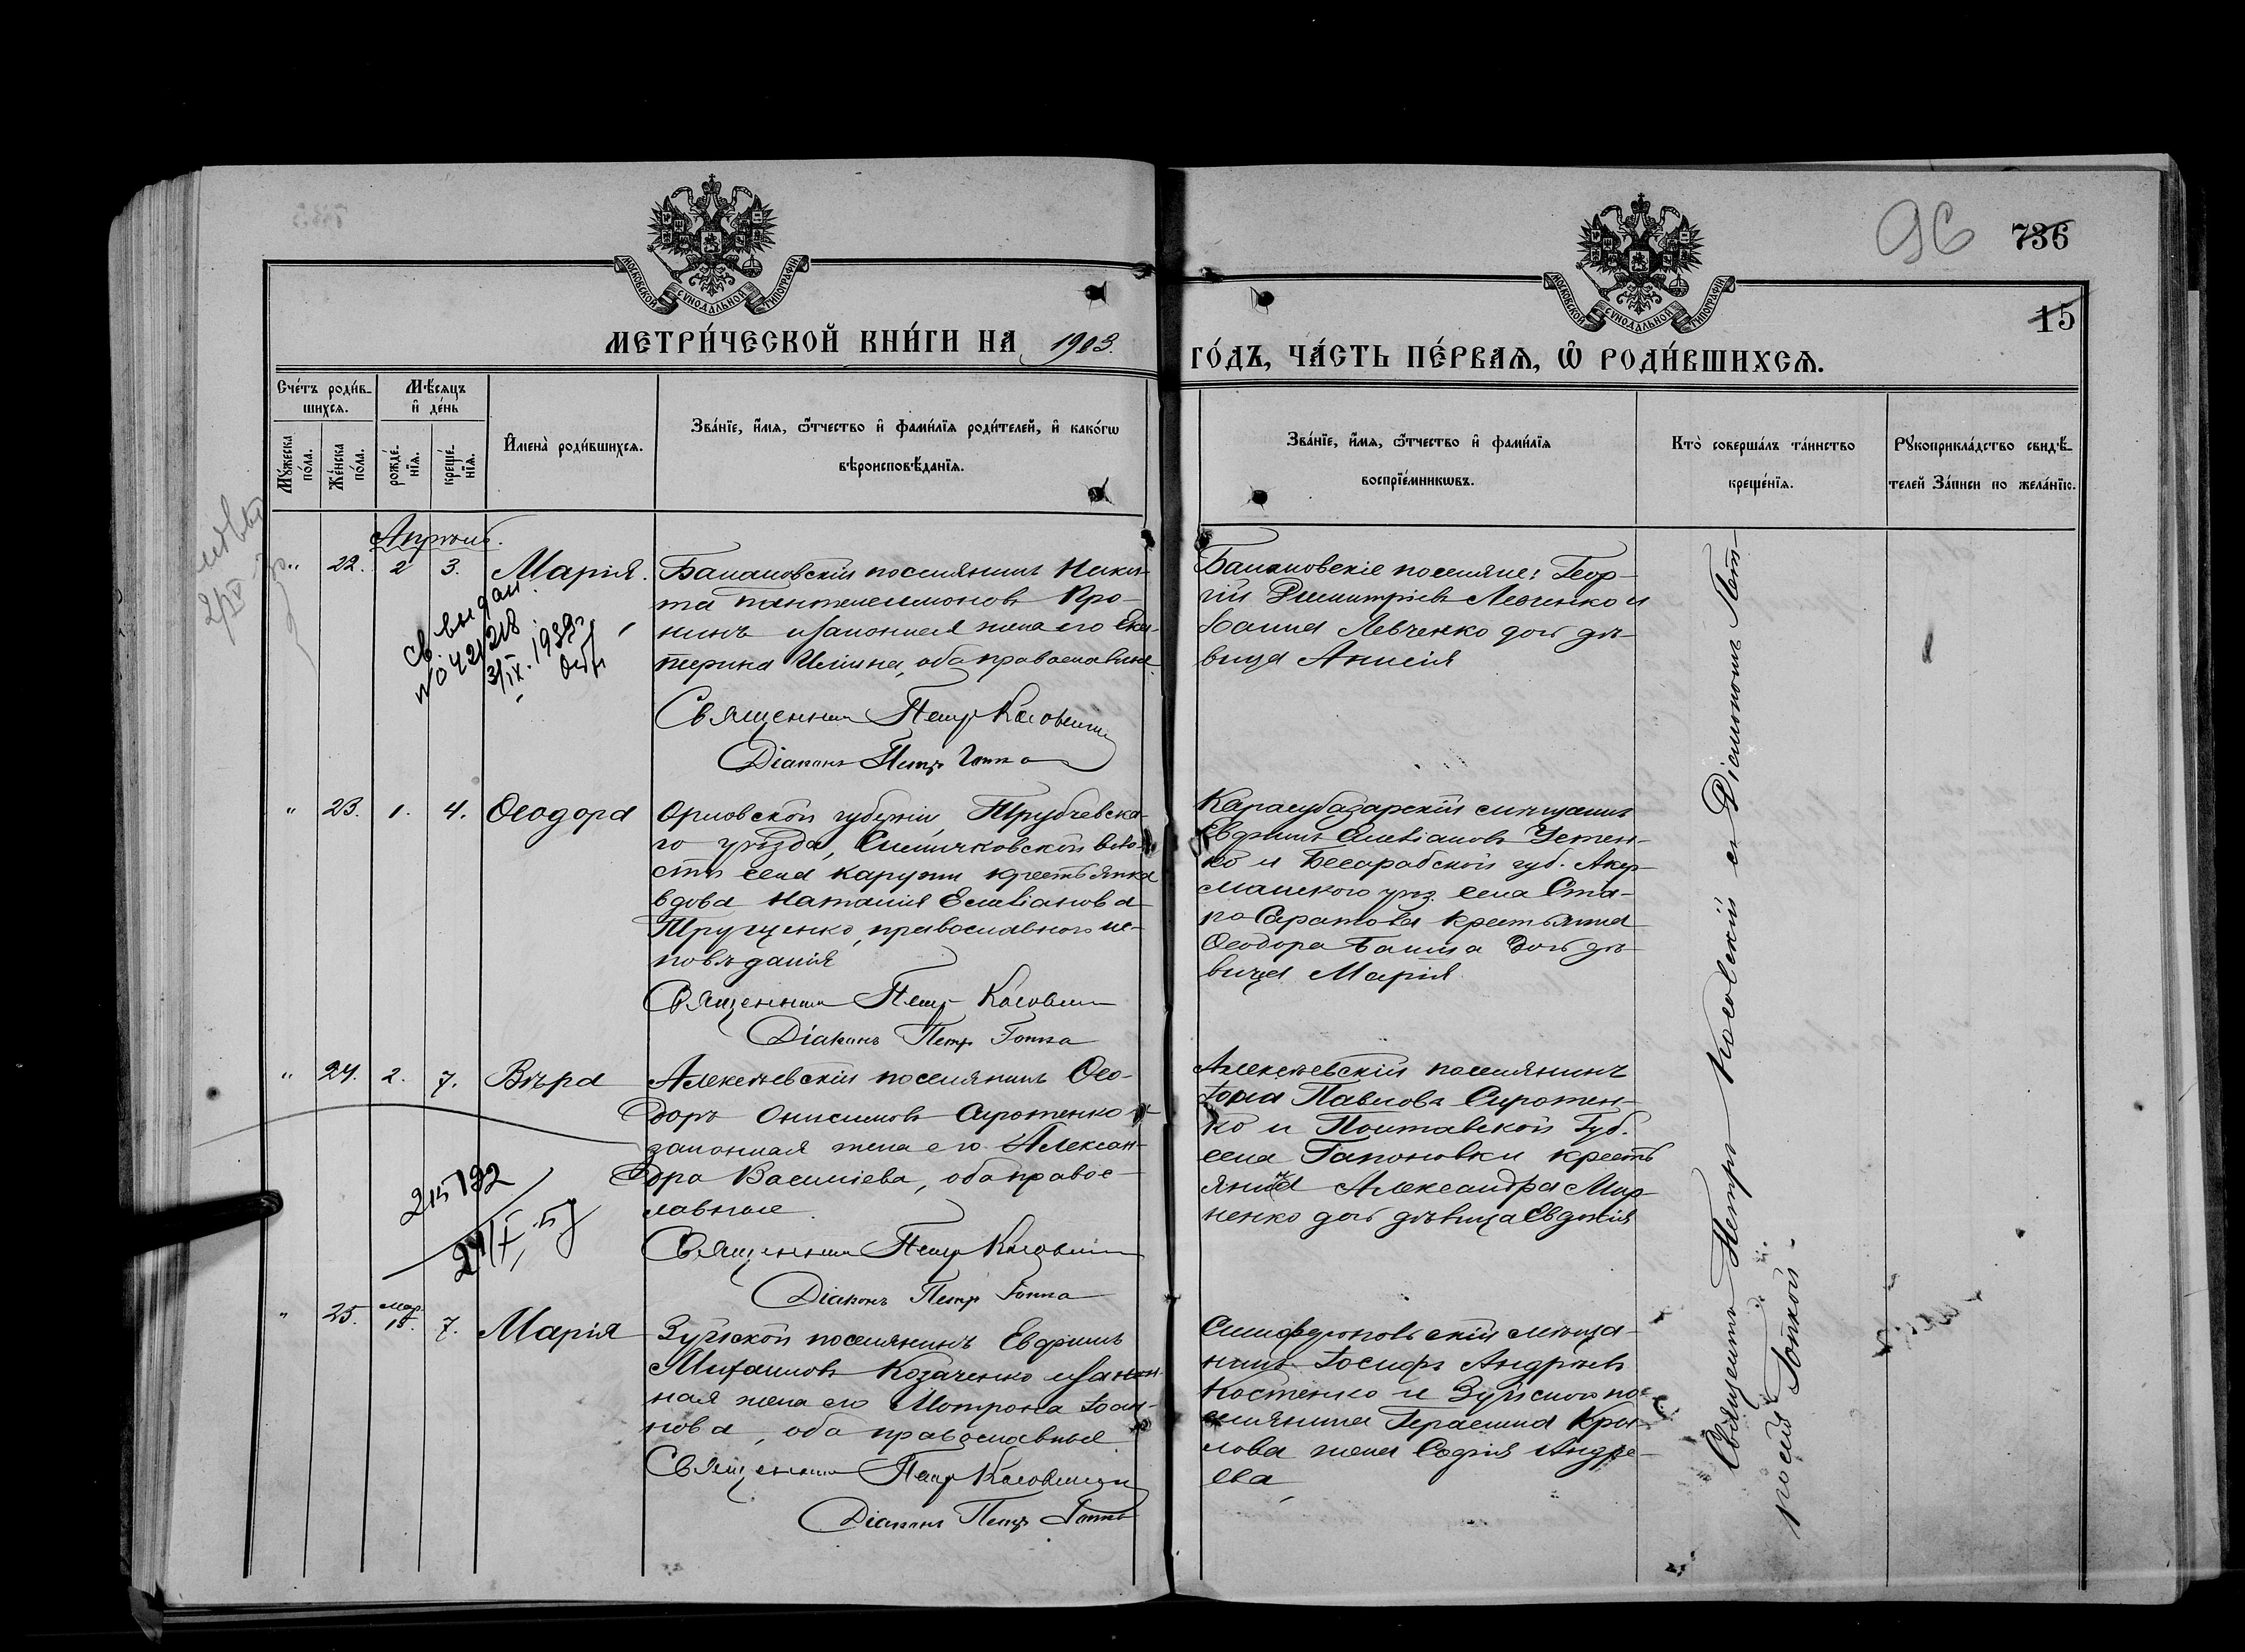 96
736
15
МОСКОВСКОЙ СѴНОДАЛЬНОЙ ТИПОГРАФІИ
МОСКОВСКОЙ СѴНОДАЛЬНОЙ ТИПОГРАФІИ
МЕТРИ́ЧЕСКОЙ КНИ́ГИ НА 1903.
ГО́ДЪ, ЧА́СТЬ ПЕ́РВАѦ, Ѽ РОДИ́ВШИХСѦ.
Сче́тъ роди́в-
шихсѧ.
Мꙋ́жеска
по́ла.
Же́нска
по́ла.
Мѣ́сѧцъ
и҆ де́нь
рожде́-
нїѧ.
креще́-
нїѧ.
И҆мена̀ роди́вшихсѧ.
Зва́нїе, и҆́мѧ, ѻ҆́тчество и҆ фамі́лїѧ роди́телей, и҆ како́гѡ
вѣроисповѣ́данїѧ.
Зва́нїе, и҆́мѧ, ѻ҆́тчество и҆ фамі́лїѧ
воспрїе́мникѡвъ.
Кто̀ соверша́лъ та́инство
креще́нїѧ.
Рꙋкоприкла́дство свидѣ́-
телей За́писи по жела́нїю.
Апрѣль.
" 22. 2 3. Марія.
Св. выдан.
№ 421218
3/IX. 1939 г.
Банановскій поселянинъ Ники-
та Пантелеимоновъ Кро-
нинъ и законная жена его Ека-
терина Ильина, оба православные
Священникъ Петръ Косовскій
Діаконъ Петръ Гопка
Банановскіе поселяне: Геор-
гій Димитріевъ Левченко и
Іоанна Левченко дочь дѣ-
вица Анисія
" 23. 1. 4. Ѳеодора
Орловской губерніи, Трубчевска-
го уѣзда, Семячковской воло-
сти села Карупи крестьянка
вдова Наталія Емиліанова
Трущенко, православнаго ис-
повѣданія
Священникъ Петръ Косовскій
Діаконъ Петръ Гопка
Карасубазарскій мѣщанинъ
Евфимъ Емиліановъ Устен-
ко и Бессарабской губ. Акер-
манскаго уѣз. села Ста-
ро Саратова крестьянина
Ѳеодора Банна дочь дѣ-
вица Марія
" 24. 2. 7. Вѣра
215192
Алексѣевскій поселянинъ Ѳео-
доръ Онисимовъ Сиротенко и
законная жена его Алексан-
дра Василіева, оба правос-
лавные
Священникъ Петръ Косовскій
Діаконъ Петръ Гопка
Алексѣевскій поселянинъ
Іовъ Павловъ Сиротен-
ко и Полтавской губ.
села Гапоновки кресть
янина Александра Мир
ненко дочь дѣвица Евдокія
" 25. Мар. 15. 7. Марія
Зуйской поселянинъ Евфимъ
Михаиловъ Козаченко и закон-
ная жена его Мотрона Іоан-
нова, оба православные
Священникъ Петръ Косовскій
Діаконъ Петръ Гопка
Симферопольскій мѣща-
нинъ Іосифъ Андреевъ
Костенко и Зуйскаго по-
селянина Герасима Кры-
лова жена Софія Андре-
ева
Священникъ Петръ Косовскій съ Діакономъ Пет-
ромъ Гопкой.